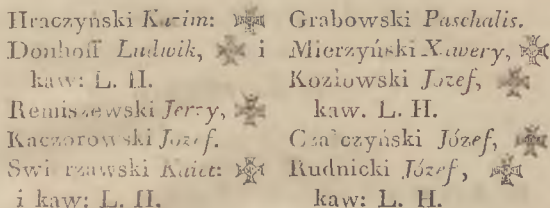 Hraczyński Kazim:
Donhoff Ludwik, i
kaw: L. H.
Remiszewski Jerzy,
Kaczorowski Jozef.
Swirzawski Kaiet:
i kaw: L. H.
Grabowski Paschalis.
Mierzyński Xawery,
Kozłowski Jozef,
kaw. L. H.
Czalczyński Józef,
Rudnicki Józef,
kaw: L. H.